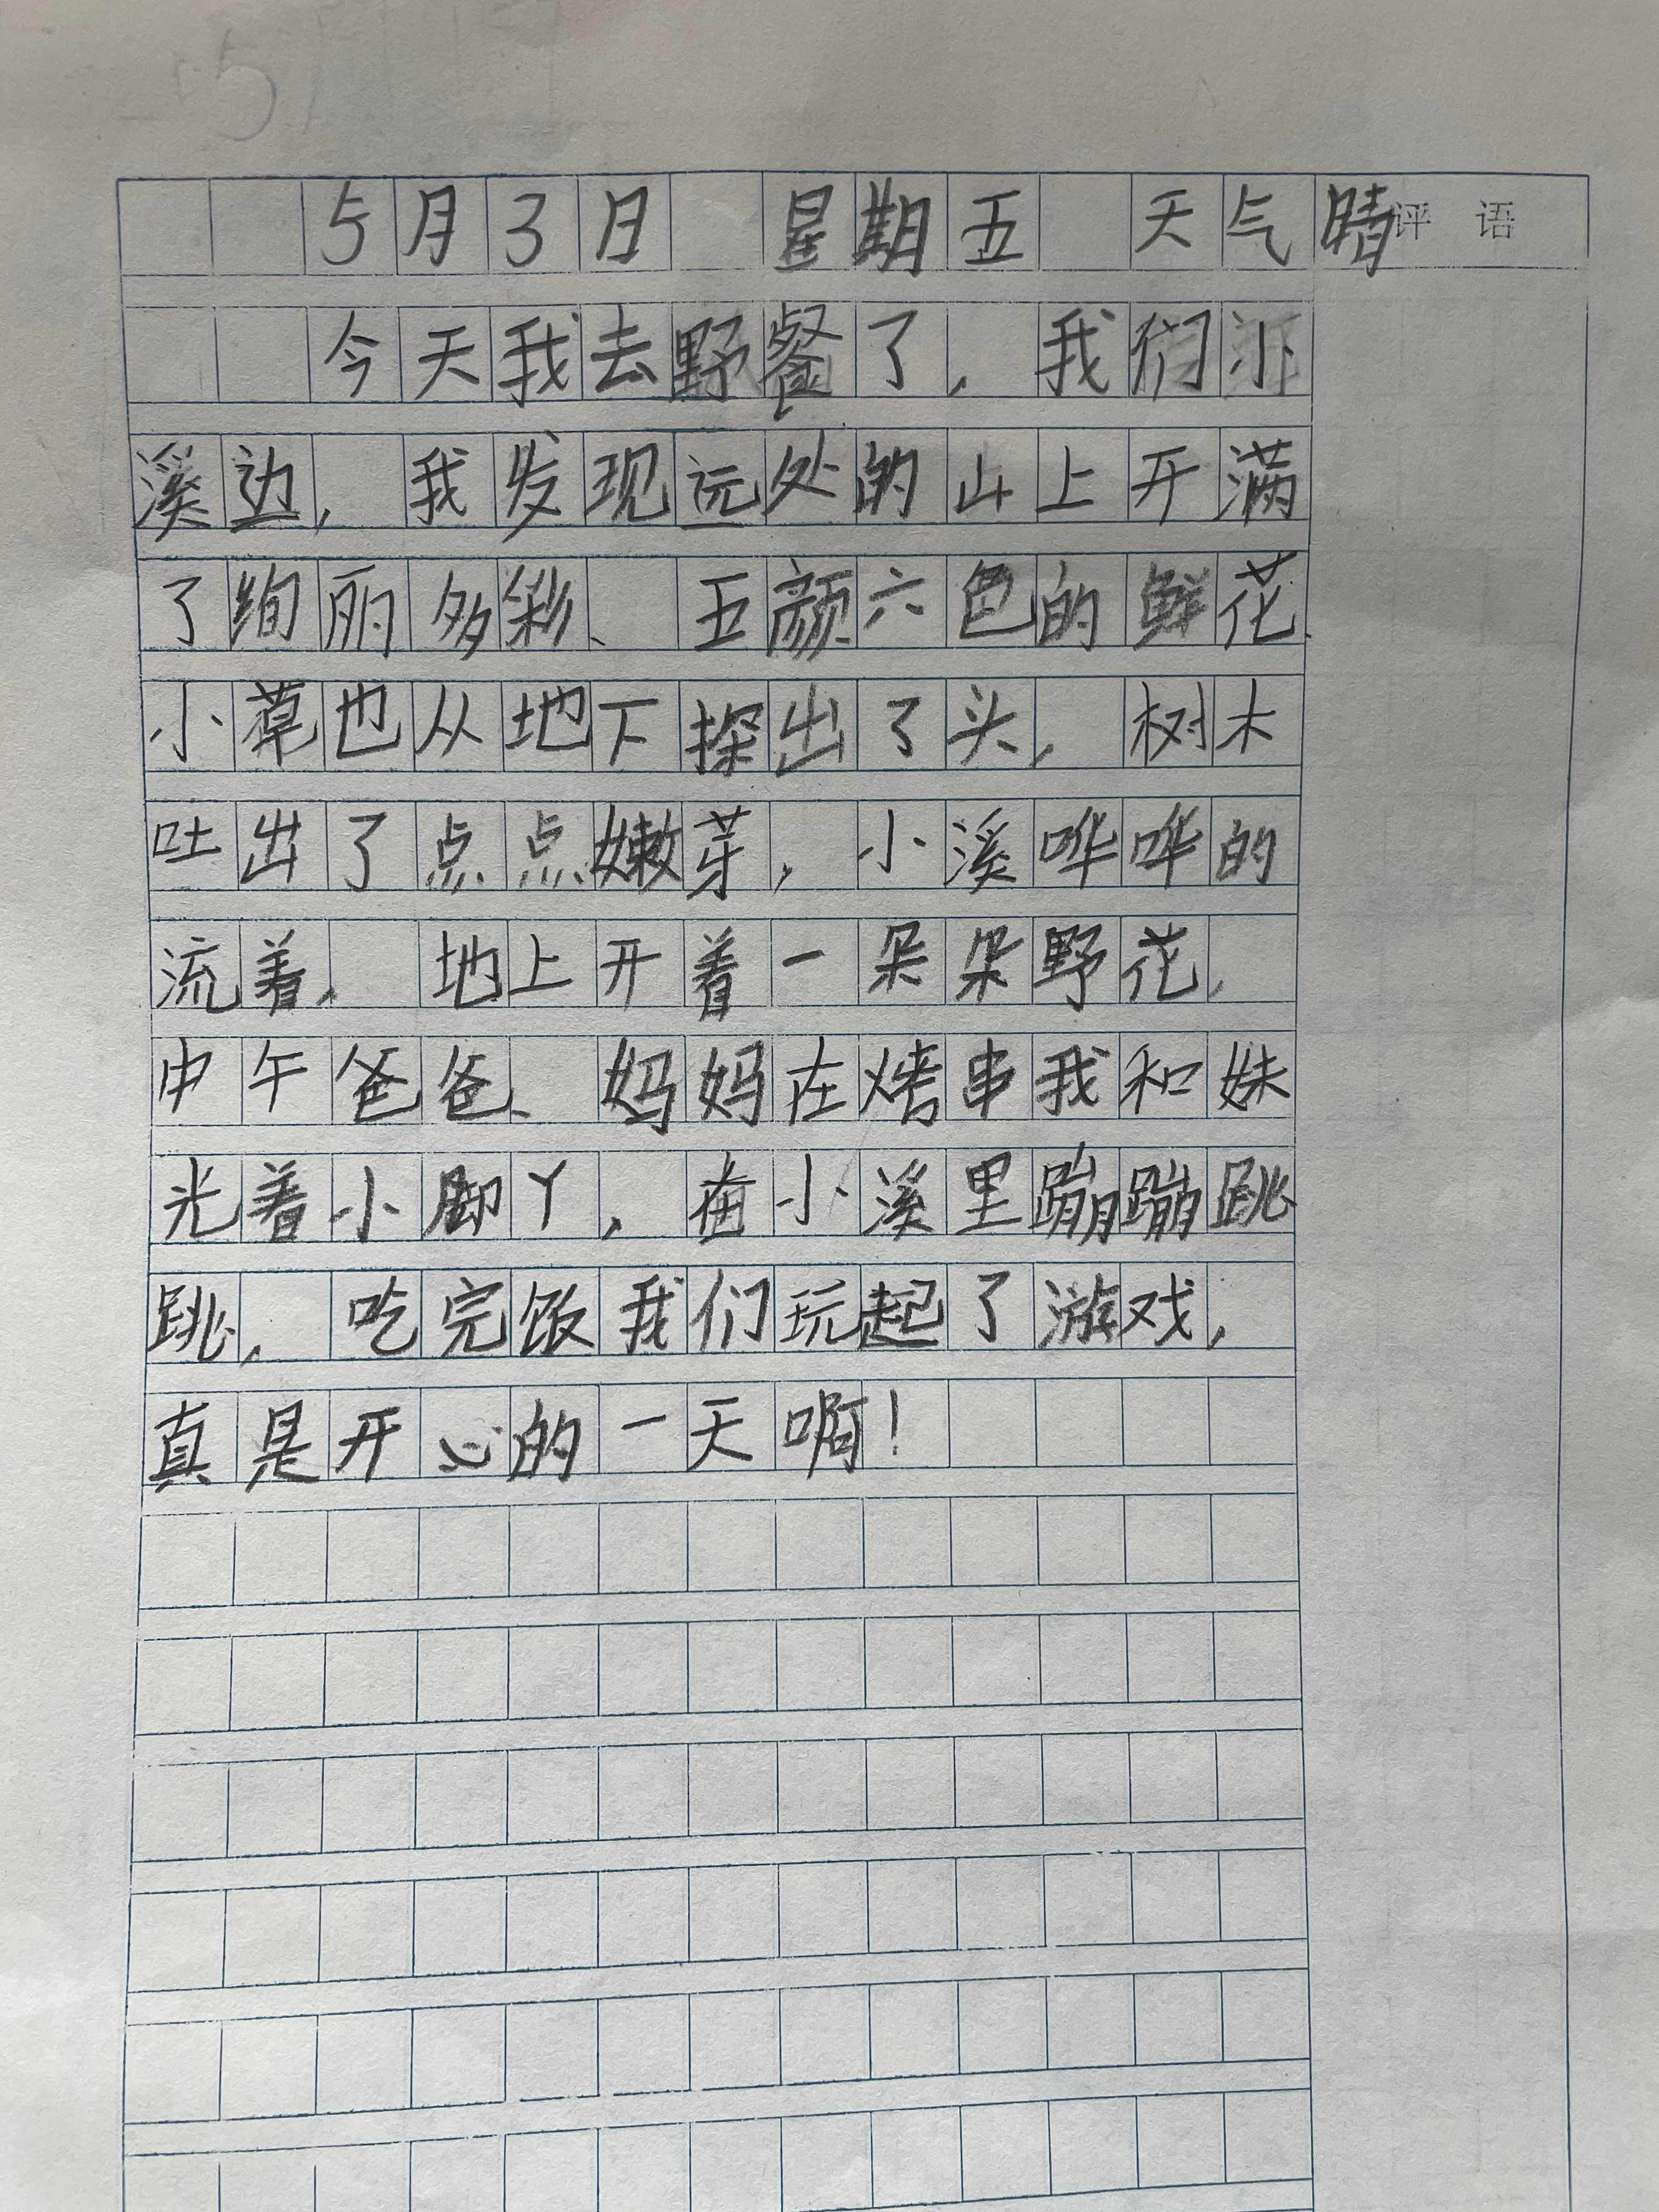 5月3日 星期五 天气晴 评语
今天我去野餐了，我们小
溪边，我发现远处的山上开满
了绚丽多彩、五颜六色的鲜花、
小草也从地下探出了头，树木
吐出了点点嫩芽，小溪哗哗的
流着，地上开着一朵朵野花，
中午爸爸、妈妈在烤串我和妹
光着小脚丫，在小溪里蹦蹦跳
跳，吃完饭我们玩起了游戏，
真是开心的一天啊！